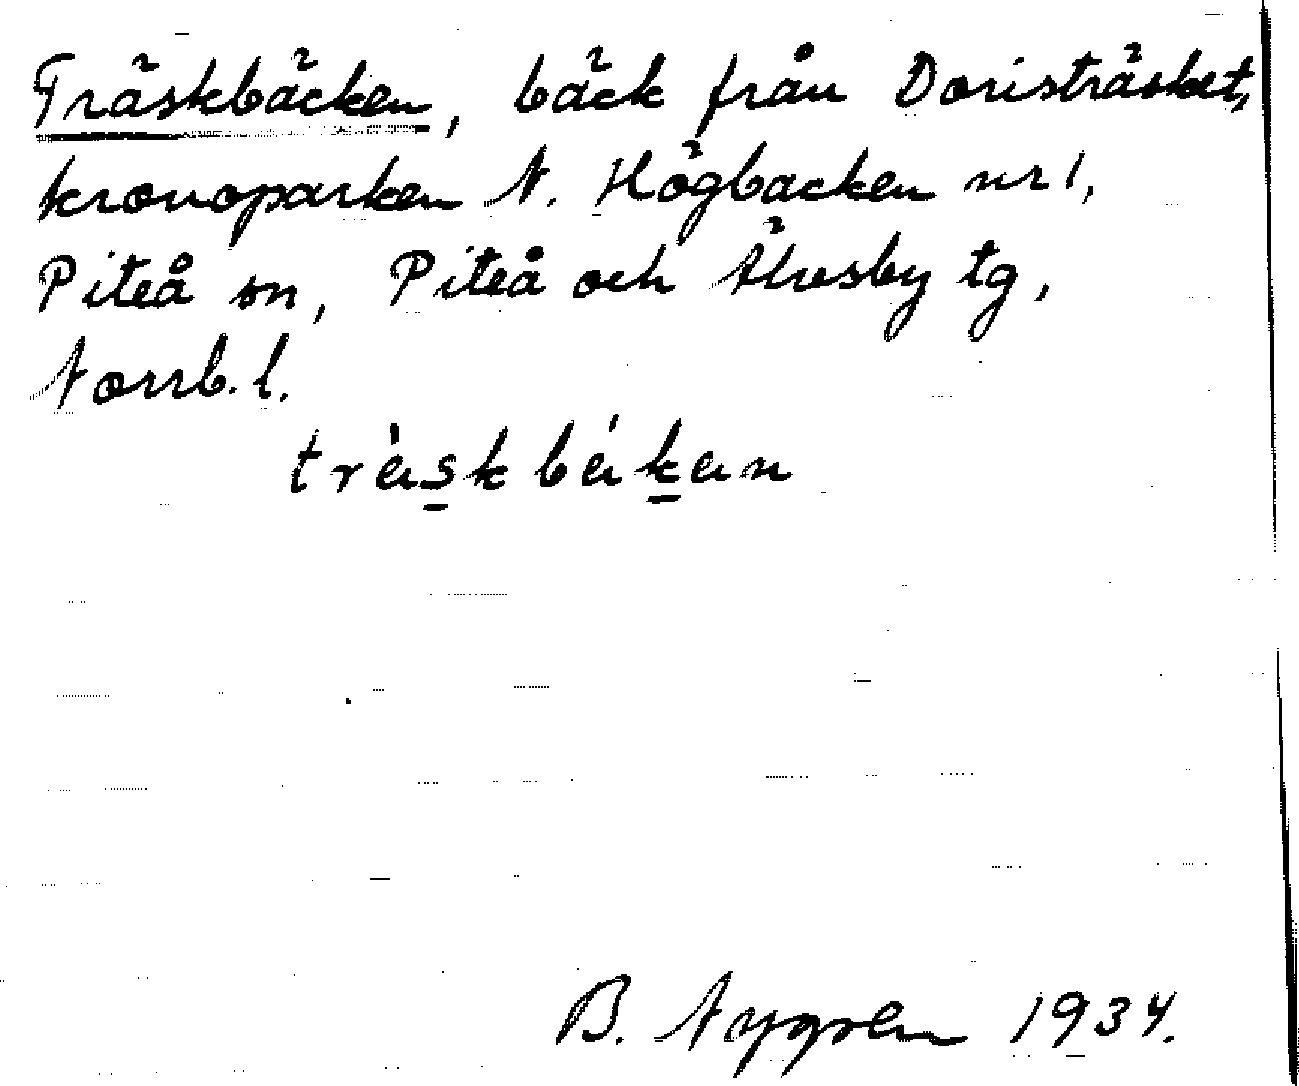 Träskbäcken, bäck från Doristräsket,
kronoparken N. Högbacken nr 1,
Piteå sn, Piteå och Älvsby tg,
Norrb. l.
trä̀skbä́kan
B. Nygren 1934.